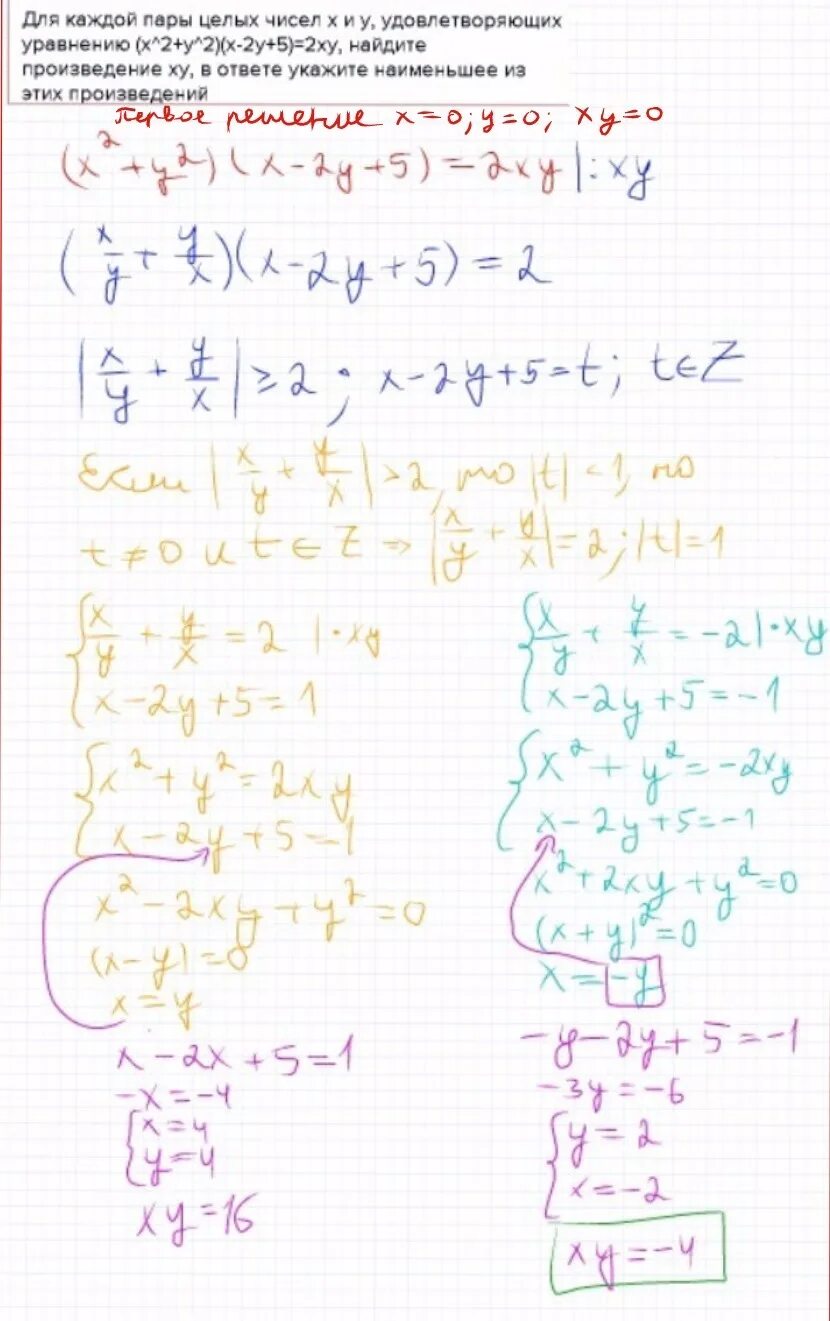 Для каждой пары целых чисел x и y, удовлетворяющих
уравнению (x^2+y^2)(x-2y+5)=2xy, найдите
произведение xy, в ответе укажите наименьшее из
этих произведений
Первое решение x=0; y=0; xy=0
(x²+y²)(x-2y+5)=2xy |:xy
(x/y + y/x)(x-2y+5)=2
|x/y + y/x| ≥ 2; x-2y+5=t; t∈Z
Если |x/y + y/x| > 2, то |t| < 1, но
t≠0 и t∈Z ⇒ |x/y + y/x| = 2; |t|=1
{ x/y + y/x = 2 |·xy
x-2y+5=1
{ x²+y²=2xy
x-2y+5=1
x²-2xy+y²=0
(x-y)=0
x=y
x-2x+5=1
-x=-4
{ x=4
y=4
xy=16
{ x/y + y/x = -2 |·xy
x-2y+5=-1
{ x²+y²=-2xy
x-2y+5=-1
x²+2xy+y²=0
(x+y)²=0
x=-y
-y-2y+5=-1
-3y=-6
{ y=2
x=-2
xy=-4